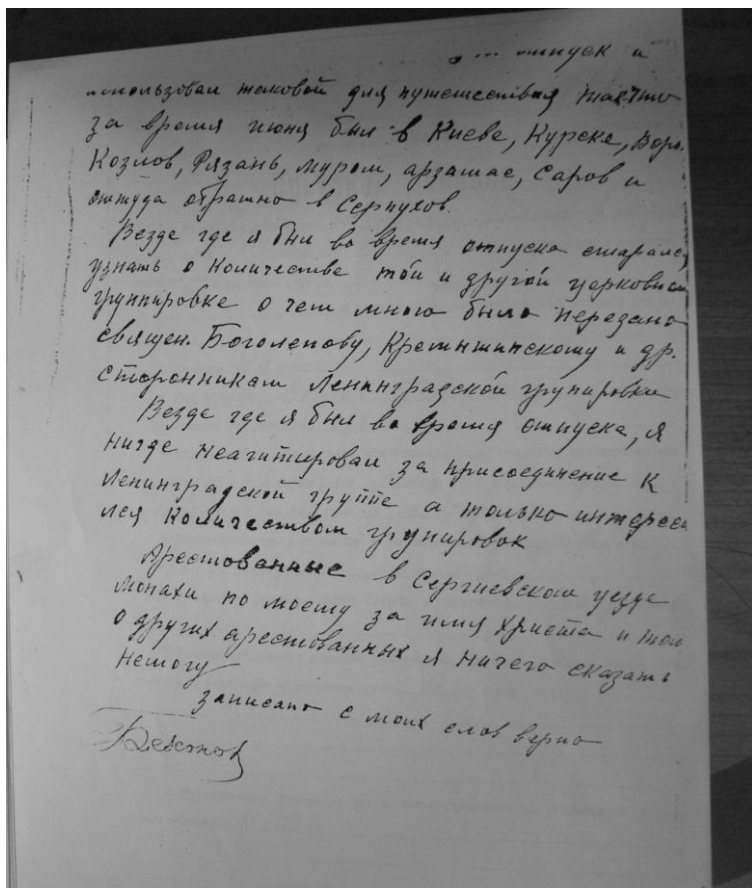 отпуск и
использовал таковой для путешествия так что
за время июня был в Киеве, Курске, Вор.
Козлов, Рязань, муром, арзамас, Саров и
оттуда обратно в Серпухов.
Везде где я был во время отпуска старался
узнать о количестве той и другой церковной
группировке о чем мною было передано
священ. Боголепову, Кремышинскому и др.
сторонникам Ленинградской групировки
Везде где я был во время отпуска, я
нигде неагитировал за присоединение к
Ленинградской группе а только интересо
лся количеством групировок
Арестованные в Сергиевском уезде
монахи по моему за имя Христа и
о других арестованных я ничего сказать
немогу
записано с моих слов верно